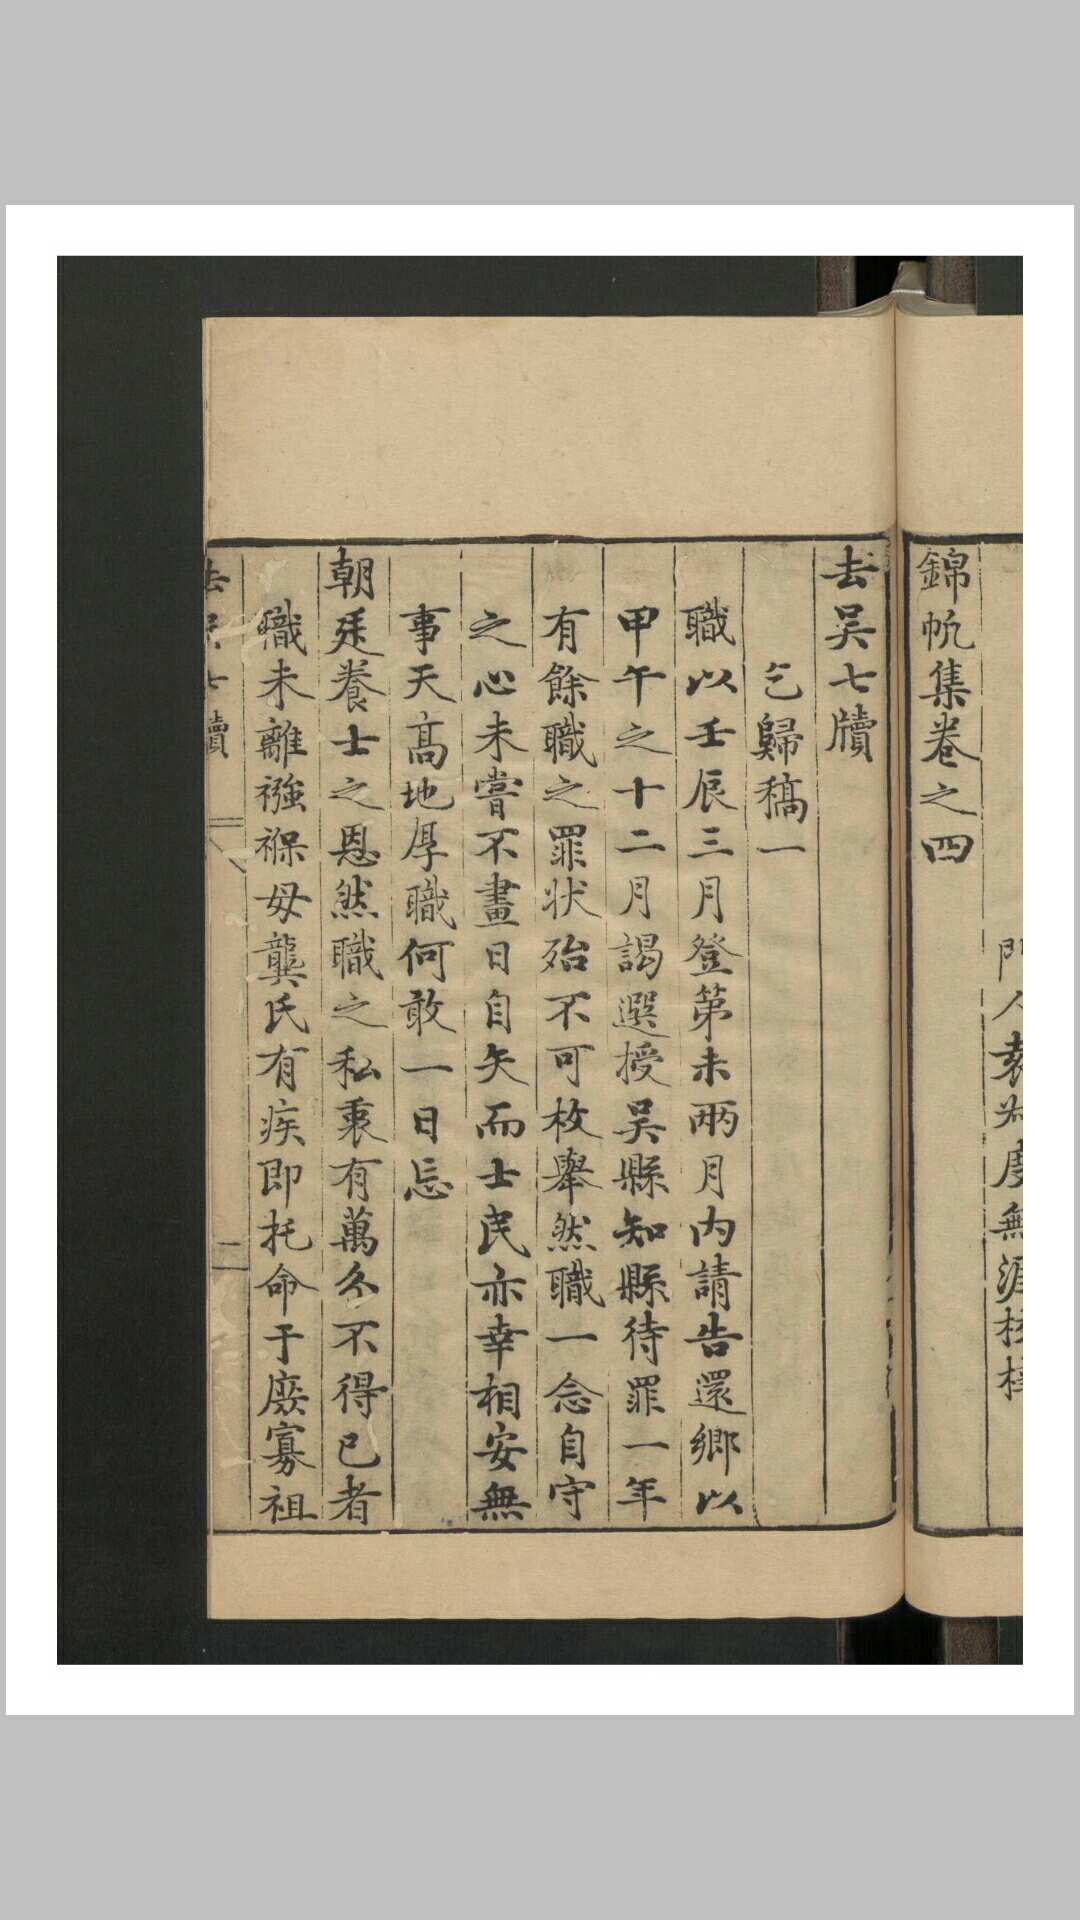 錦帆集卷之四
門人袁叔度無涯校梓
去吴七牘
乞歸稿一
職以壬辰三月登第未兩月內請告還鄉以
甲午之十二月謁選授吴縣知縣待罪一年
有餘職之罪狀殆不可枚舉然職一念自守
之心未嘗不晝日自矢而士民亦幸相安無
事天高地厚職何敢一日忘
朝廷養士之恩然職之私衷有萬分不得已者
職未離襁褓母龔氏有疾即托命于庶寡祖
去吴七牘
二